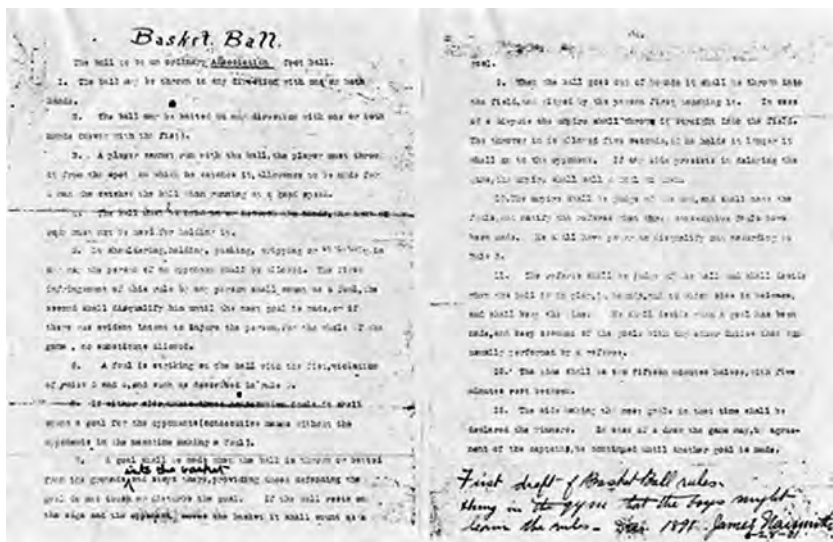 Basket Ball.
The ball to be an ordinary Association foot ball.
1. The ball may be thrown in any direction with one or both
hands.
2. The ball may be batted in any direction with one or both
hands (never with the fist).
3. A player cannot run with the ball, the player must throw
it from the spot on which he catches it, allowance to be made for
a man who catches the ball when running at a good speed.
4. The ball must be held in or between the hands, the arms or
body must not be used for holding it.
5. No shouldering, holding, pushing, tripping or striking, in
any way the person of an opponent shall be allowed. The first
infringement of this rule by any person shall count as a foul, the
second shall disqualify him until the next goal is made, or if
there was evident intent to injure the person, for the whole of the
game, no substitute allowed.
6. A foul is striking at the ball with the fist, violation
of rules 3 and 4, and such as described in rule 5.
7. If either side three consecutive fouls it shall
count a goal for the opponents (consecutive means without the
opponents in the meantime making a foul).
8. A goal shall be made when the ball is thrown or batted
into the basket
from the grounds and stays there, providing those defending the
goal do not touch or disturb the goal. If the ball rests on
the edge and the opponent moves the basket it shall count as a
goal.
9. When the ball goes out of bounds it shall be thrown into
the field, and played by the person first touching it. In case
of a dispute the umpire shall throw it straight into the field.
The thrower in is allowed five seconds, if he holds it longer it
shall go to the opponent. If any side presists in delaying the
game, the umpire shall call a foul on them.
10. The umpire shall be judge of the men, and shall note the
fouls, and notify the referee when three consecutive fouls have
been made. He shall have power to disqualify men according to
Rule 5.
11. The referee shall be judge of the ball and shall decide
when the ball is in play, in bounds, and to which side it belongs,
and shall keep the time. He shall decide when a goal has been
made, and keep account of the goals with any other duties that are
usually performed by a referee.
12. The time shall be two fifteen minutes halves, with five
minutes rest between.
13. The side making the most goals in that time shall be
declared the winners. In case of a draw the game may, by agree-
ment of the captains, be continued until another goal is made.
First draft of Basket Ball rules.
Hung in the gym that the boys might
learn the rules - Dec. 1891 James Naismith
6-28-31